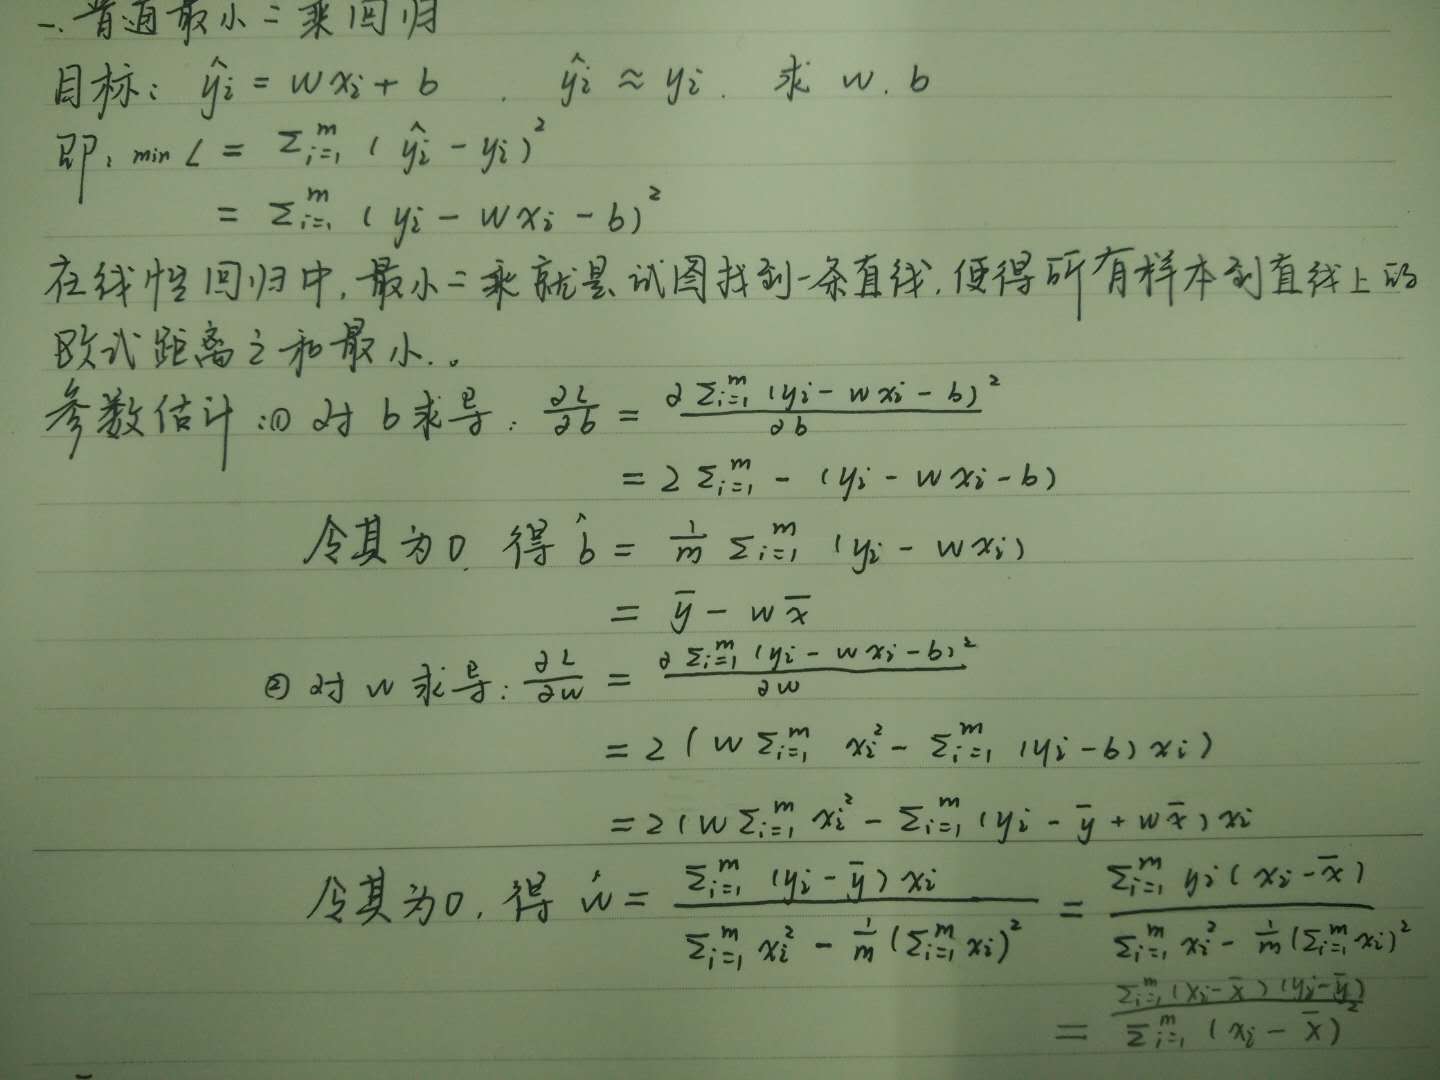 一. 普通最小二乘回归
目标: ŷi = wxi + b , ŷi ≈ yi. 求 w. b
即, min L = Σᵢ₌₁ᵐ (ŷi - yi)²
= Σᵢ₌₁ᵐ (yi - wxi - b)²
在线性回归中, 最小二乘就是试图找到一条直线, 使得所有样本到直线上的
欧式距离之和最小.。
参数估计:① 对 b 求导: ∂L/∂b = ∂Σᵢ₌₁ᵐ (yi - wxi - b)² / ∂b
= 2 Σᵢ₌₁ᵐ - (yi - wxi - b)
令其为0, 得 b̂ = 1/m Σᵢ₌₁ᵐ (yi - wxi)
= ȳ - wx̄
② 对 w 求导: ∂L/∂w = ∂Σᵢ₌₁ᵐ (yi - wxi - b)² / ∂w
= 2 (w Σᵢ₌₁ᵐ xi² - Σᵢ₌₁ᵐ (yi - b) xi)
= 2 (w Σᵢ₌₁ᵐ xi² - Σᵢ₌₁ᵐ (yi - ȳ + wx̄) xi
令其为0, 得 ŵ = Σᵢ₌₁ᵐ (yi - ȳ) xi / Σᵢ₌₁ᵐ xi² - 1/m (Σᵢ₌₁ᵐ xi)² = Σᵢ₌₁ᵐ yi (xi - x̄) / Σᵢ₌₁ᵐ xi² - 1/m (Σᵢ₌₁ᵐ xi)²
= Σᵢ₌₁ᵐ (xi - x̄) (yi - ȳ) / Σᵢ₌₁ᵐ (xi - x̄)²